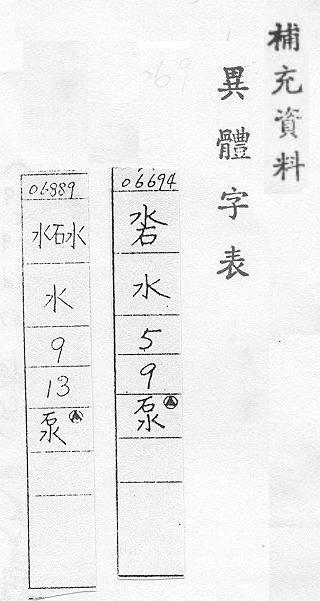 補充資料
異體字表
06694
沯
水
5
9
泵
06889
水石水
水
9
13
泵